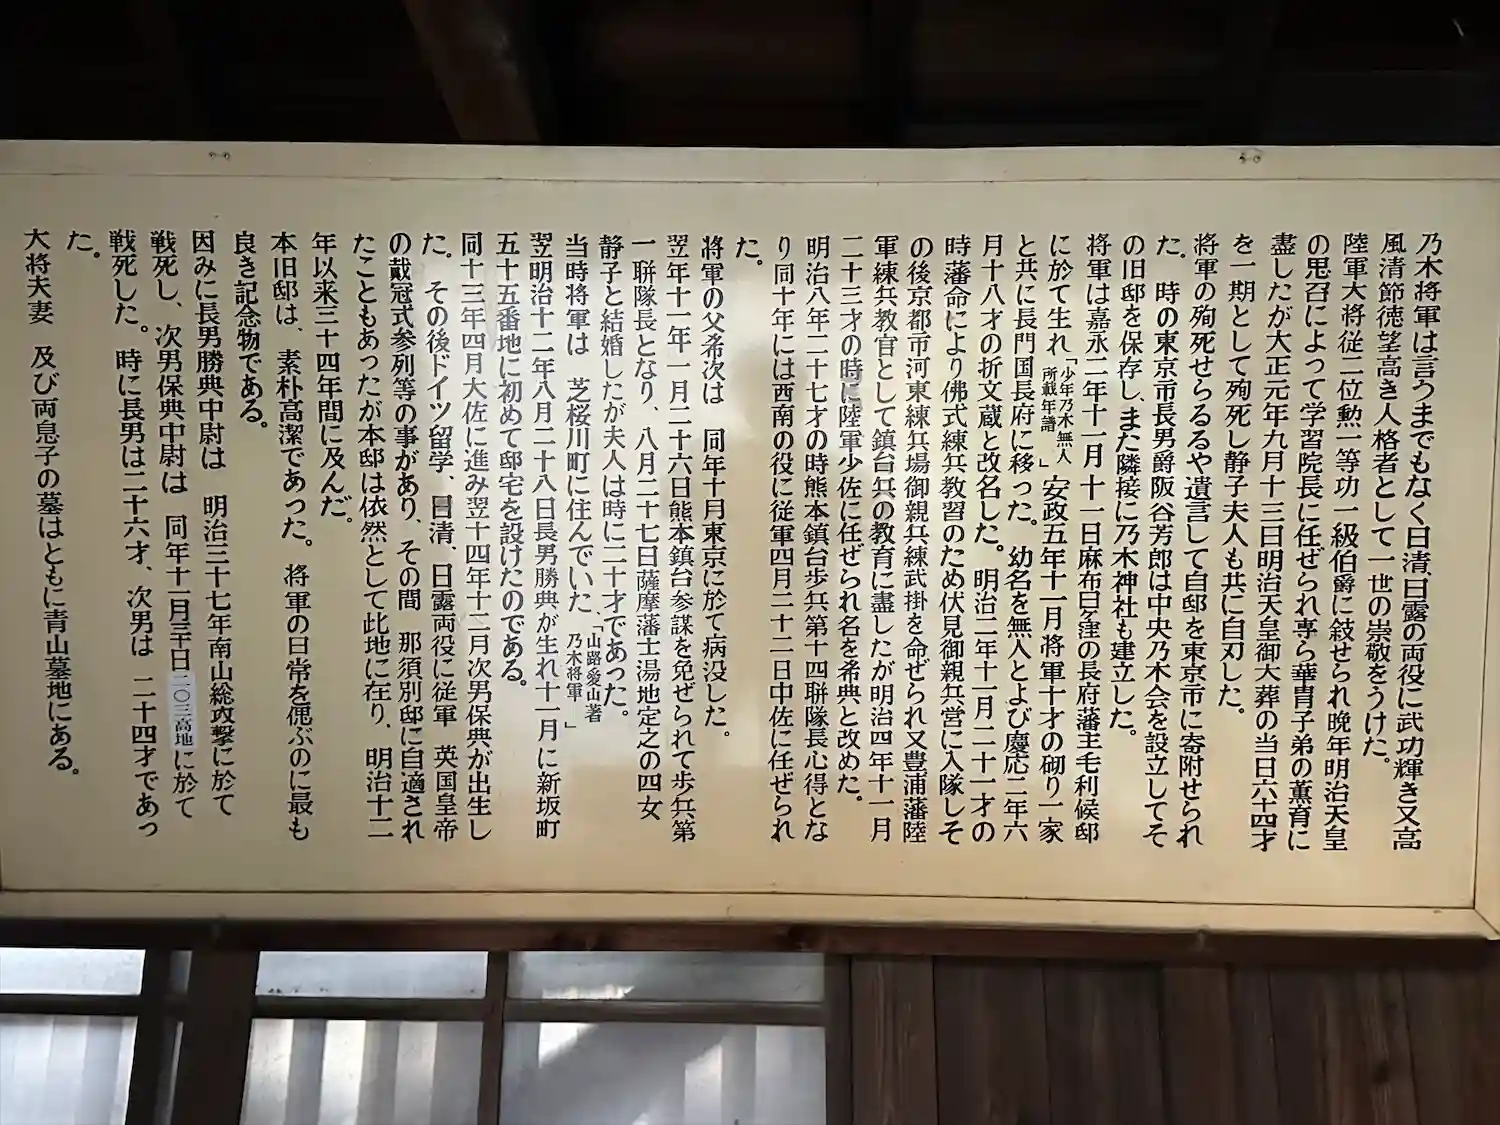 乃木将軍は言うまでもなく日清、日露の両役に武功輝き又高
風清節徳望高き人格者として一世の崇敬をうけた。
陸軍大将従二位勲一等功一級伯爵に敍せられ晩年明治天皇
の思召によって学習院長に任ぜられ専ら華冑子弟の薫育に
盡したが大正元年九月十三日明治天皇御大葬の当日六十四才
を一期として殉死し静子夫人も共に自刃した。
将軍の殉死せらるるや遺言して自邸を東京市に寄附せられ
た。時の東京市長男爵阪谷芳郎は中央乃木会を設立してそ
の旧邸を保存し、また隣接に乃木神社も建立した。
将軍は嘉永二年十一月十一日麻布日窪の長府藩主毛利候邸
に於て生れ「少年乃木無人
所載年譜」安政五年十一月将軍十才の砌り一家
と共に長門国長府に移った。幼名を無人とよび慶応二年六
月十八才の折文蔵と改名した。明治二年十一月二十一才の
時藩命により佛式練兵教習のため伏見御親兵営に入隊しそ
の後京都市河東練兵場御親兵練武掛を命ぜられ又豊浦藩陸
軍練兵教官として鎮台兵の教育に盡したが明治四年十一月
二十三才の時に陸軍少佐に任ぜられ名を希典と改めた。
明治八年二十七才の時熊本鎮台歩兵第十四聯隊長心得とな
り同十年には西南の役に従軍四月二十二日中佐に任ぜられ
た。
将軍の父希次は 同年十月東京に於て病没した。
翌年十一年一月二十六日熊本鎮台参謀を免ぜられて歩兵第
一聯隊長となり、八月二十七日薩摩藩士湯地定之の四女
静子と結婚したが夫人は時に二十才であった。
当時将軍は 芝桜川町に住んでいた、「山路愛山著
乃木将軍」
翌明治十二年八月二十八日長男勝典が生れ十一月に新坂町
五十五番地に初めて邸宅を設けたのである。
同十三年四月大佐に進み翌十四年十二月次男保典が出生し
た。その後ドイツ留学、日清、日露両役に従軍 英国皇帝
の戴冠式参列等の事があり、その間 那須別邸に自適され
たこともあったが本邸は依然として此地に在り、明治十二
年以来三十四年間に及んだ。
本旧邸は、素朴高潔であった。将軍の日常を偲ぶのに最も
良き記念物である。
因みに長男勝典中尉は 明治三十七年南山総攻撃に於て
戦死し、次男保典中尉は 同年十一月三十日二〇三高地に於て
戦死した。時に長男は二十六才、次男は 二十四才であっ
た。
大将夫妻 及び両息子の墓はともに青山墓地にある。